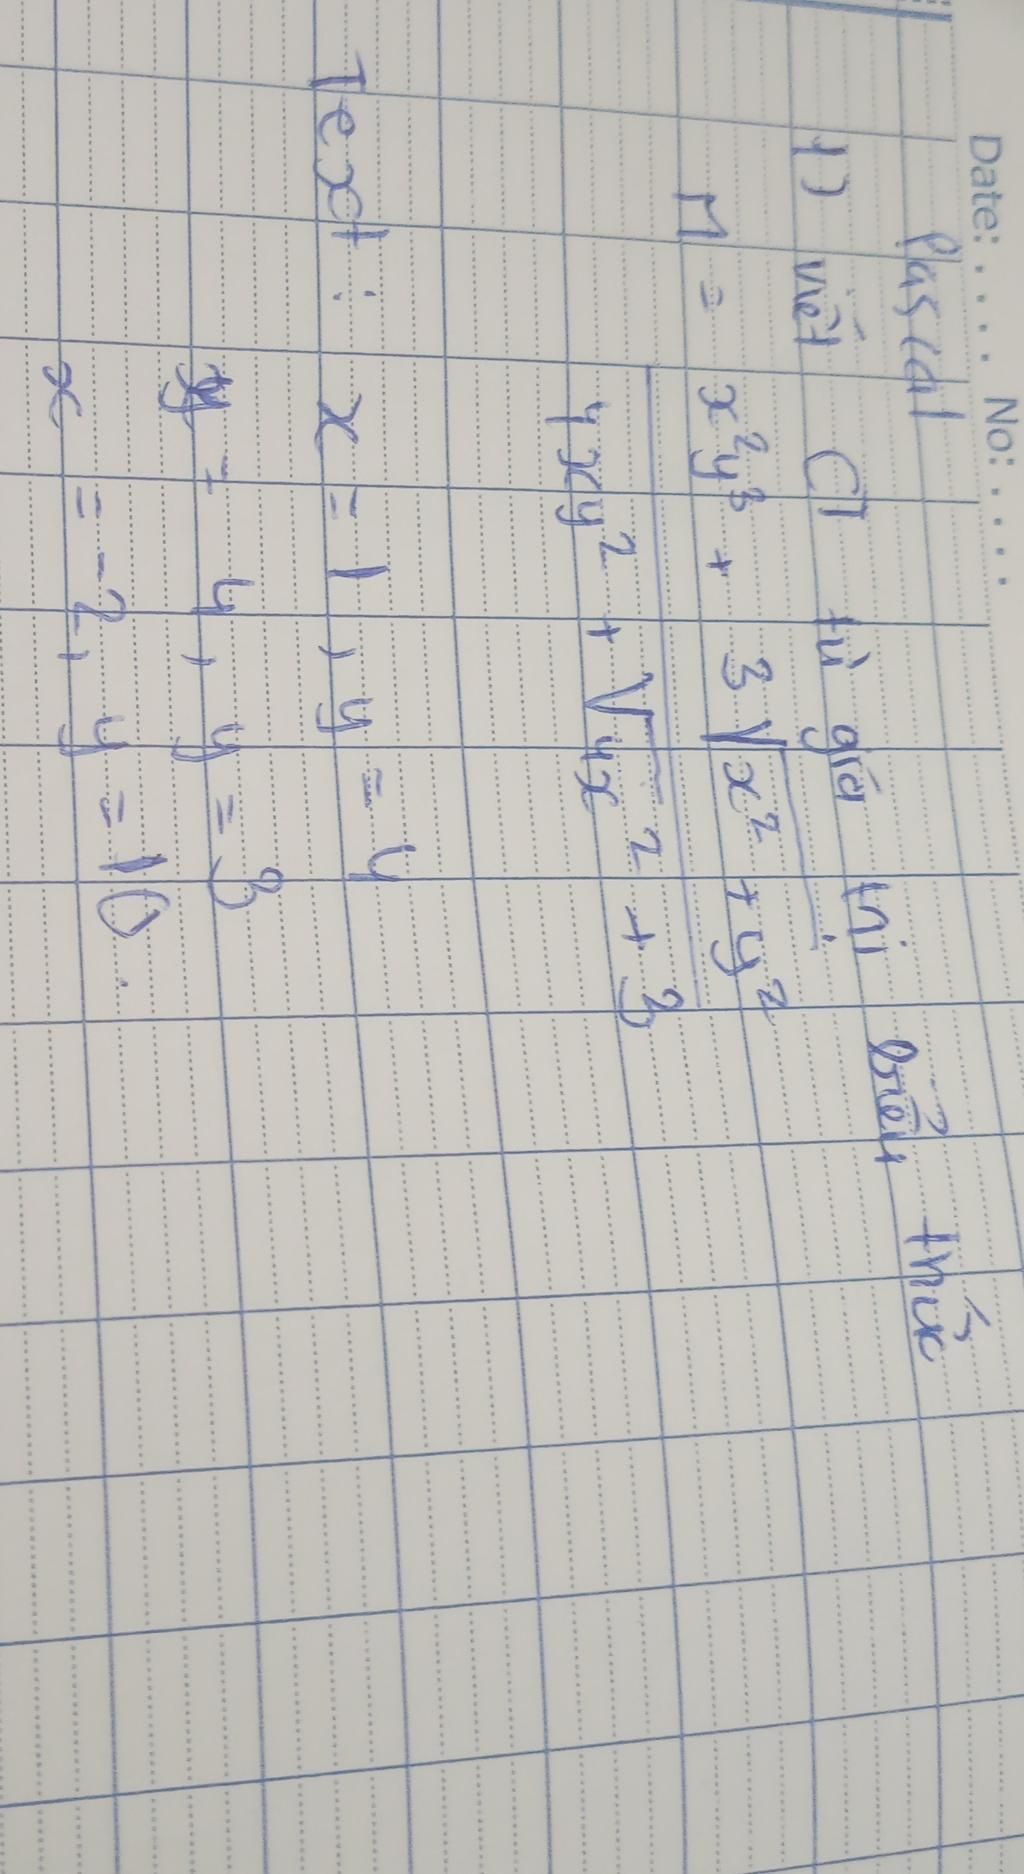 Date: . . . . No: . . . .
Pascal
1) viết CT tì giá trị biểu thức
M = x²y³ + 3√x² + y²
4xy² + √4x² + 3
Text : x = 1 , y = 4
= 4 , y = 3
x = -2, y = 10.